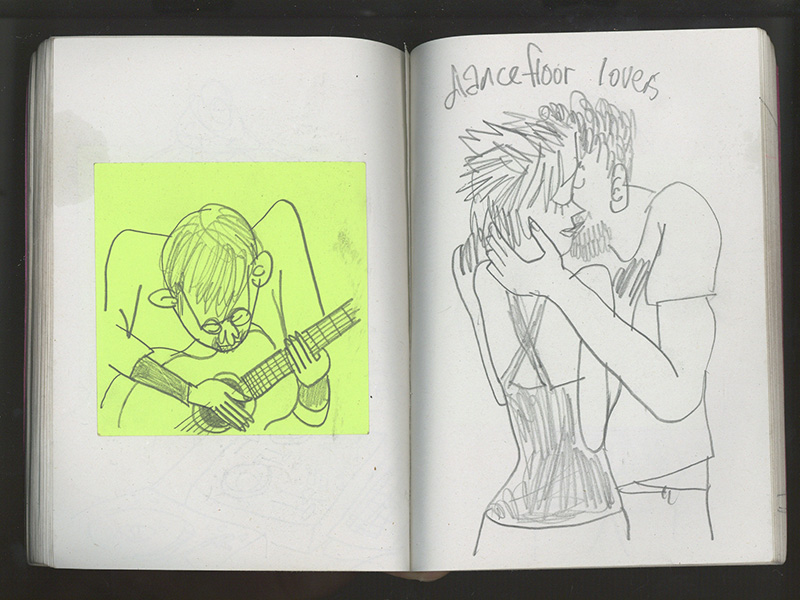 dancefloor lovers